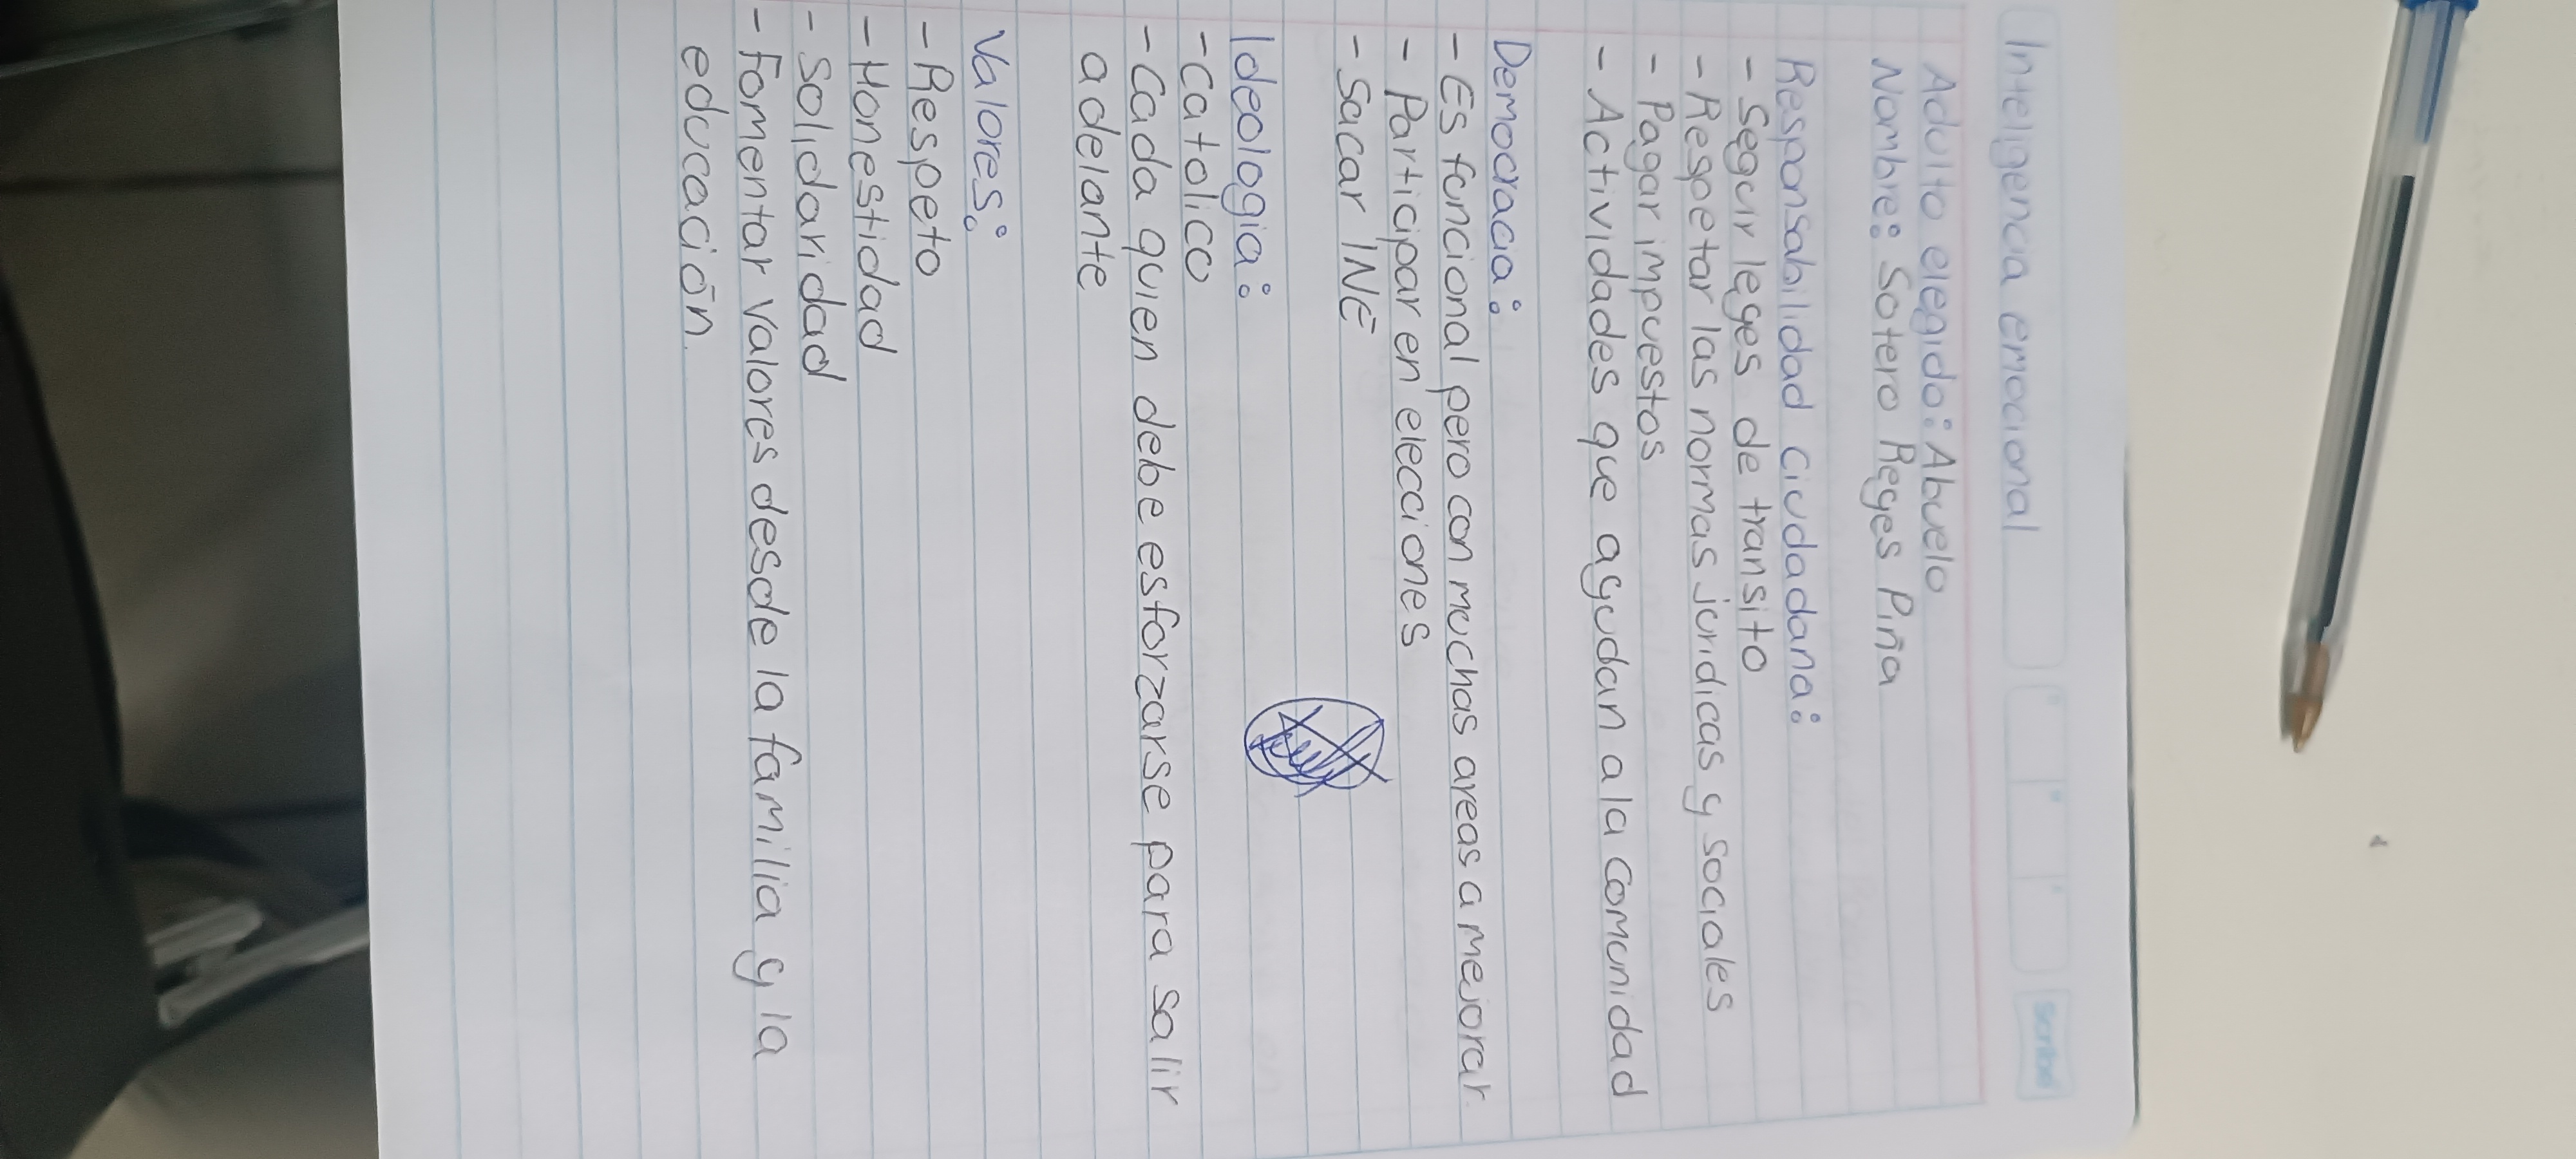 Inteligencia emocional
Scribe
Adulto elegido: Abuelo
Nombre: Sotero Reyes Piña
Responsabilidad Ciudadana:
- Seguir leyes de transito
- Respetar las normas juridicas y sociales
- Pagar impuestos
- Actividades que ayudan a la comunidad
Democracia:
- Es funcional pero con muchas areas a mejorar.
- Participar en elecciones
- Sacar INE
Ideologia:
- Catolico
- Cada quien debe esforzarse para salir
adelante
Valores:
- Respeto
- Honestidad
- Solidaridad
- Fomentar valores desde la familia y la
educación.